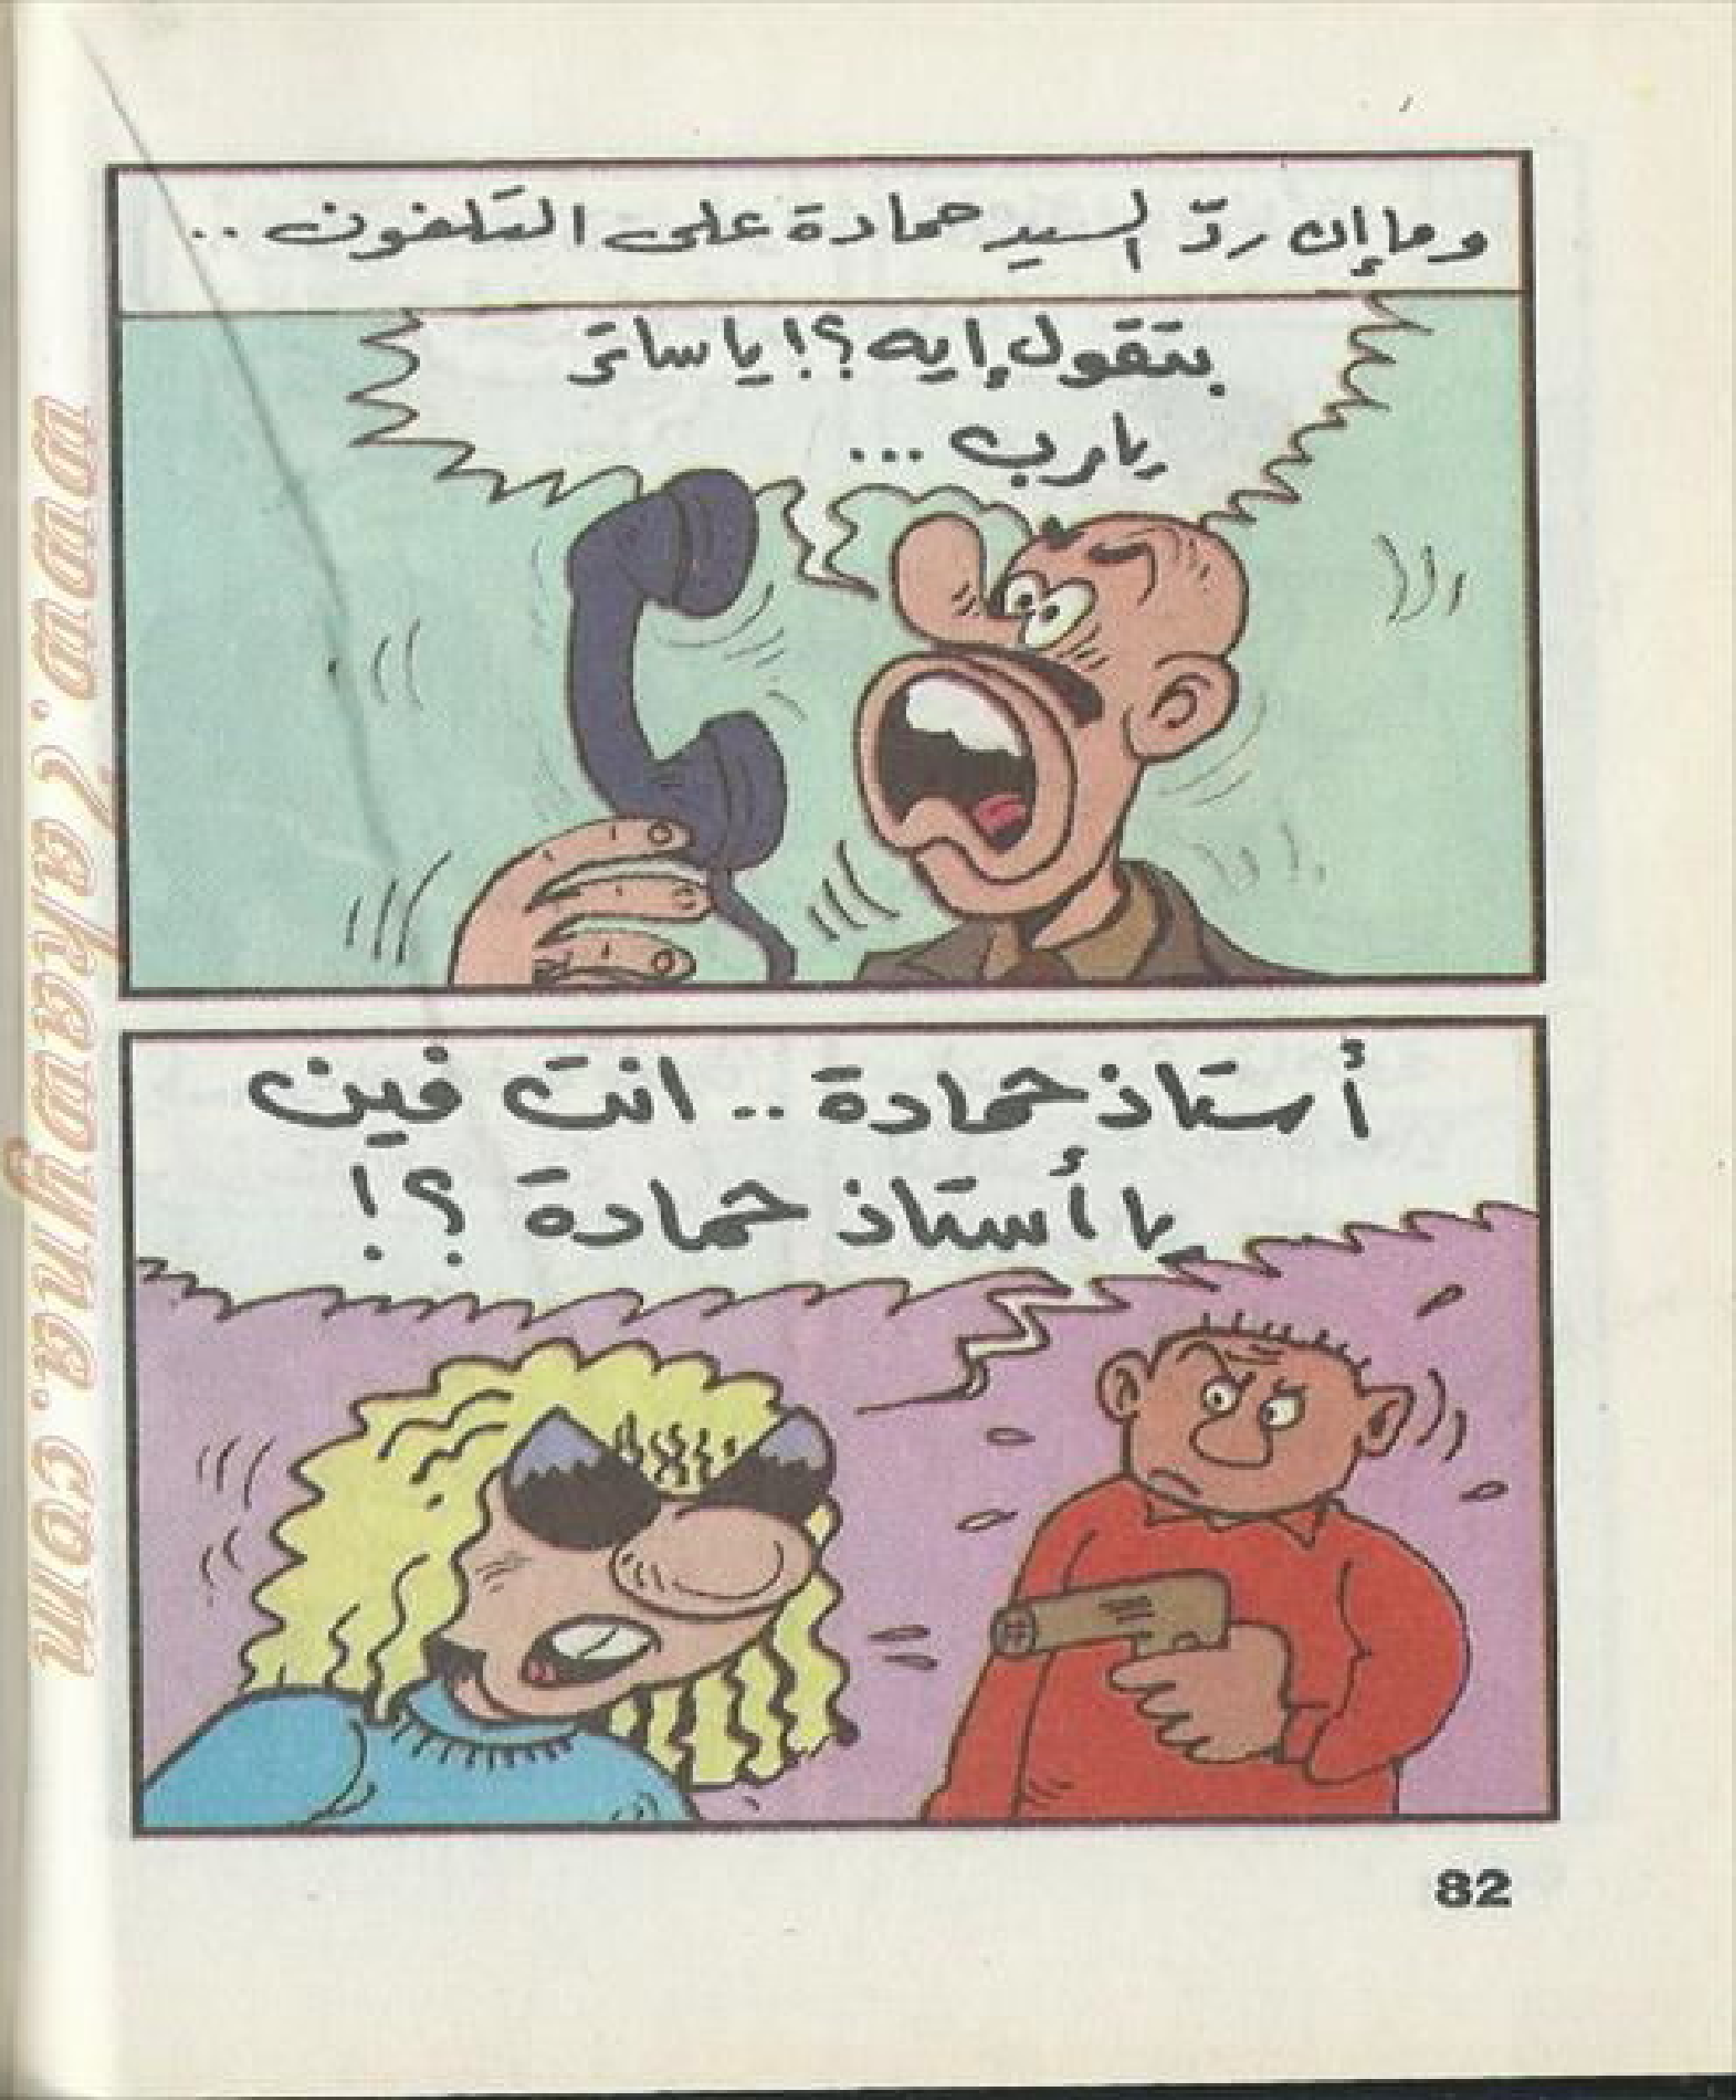 وما إن ردّ السيد حمادة على التلفون ..
بتقول إيه ؟! يا ساتر
يارب ...
أستاذ حمادة .. انت فين
يا أستاذ حمادة ؟!
82
www.7akawyna.com